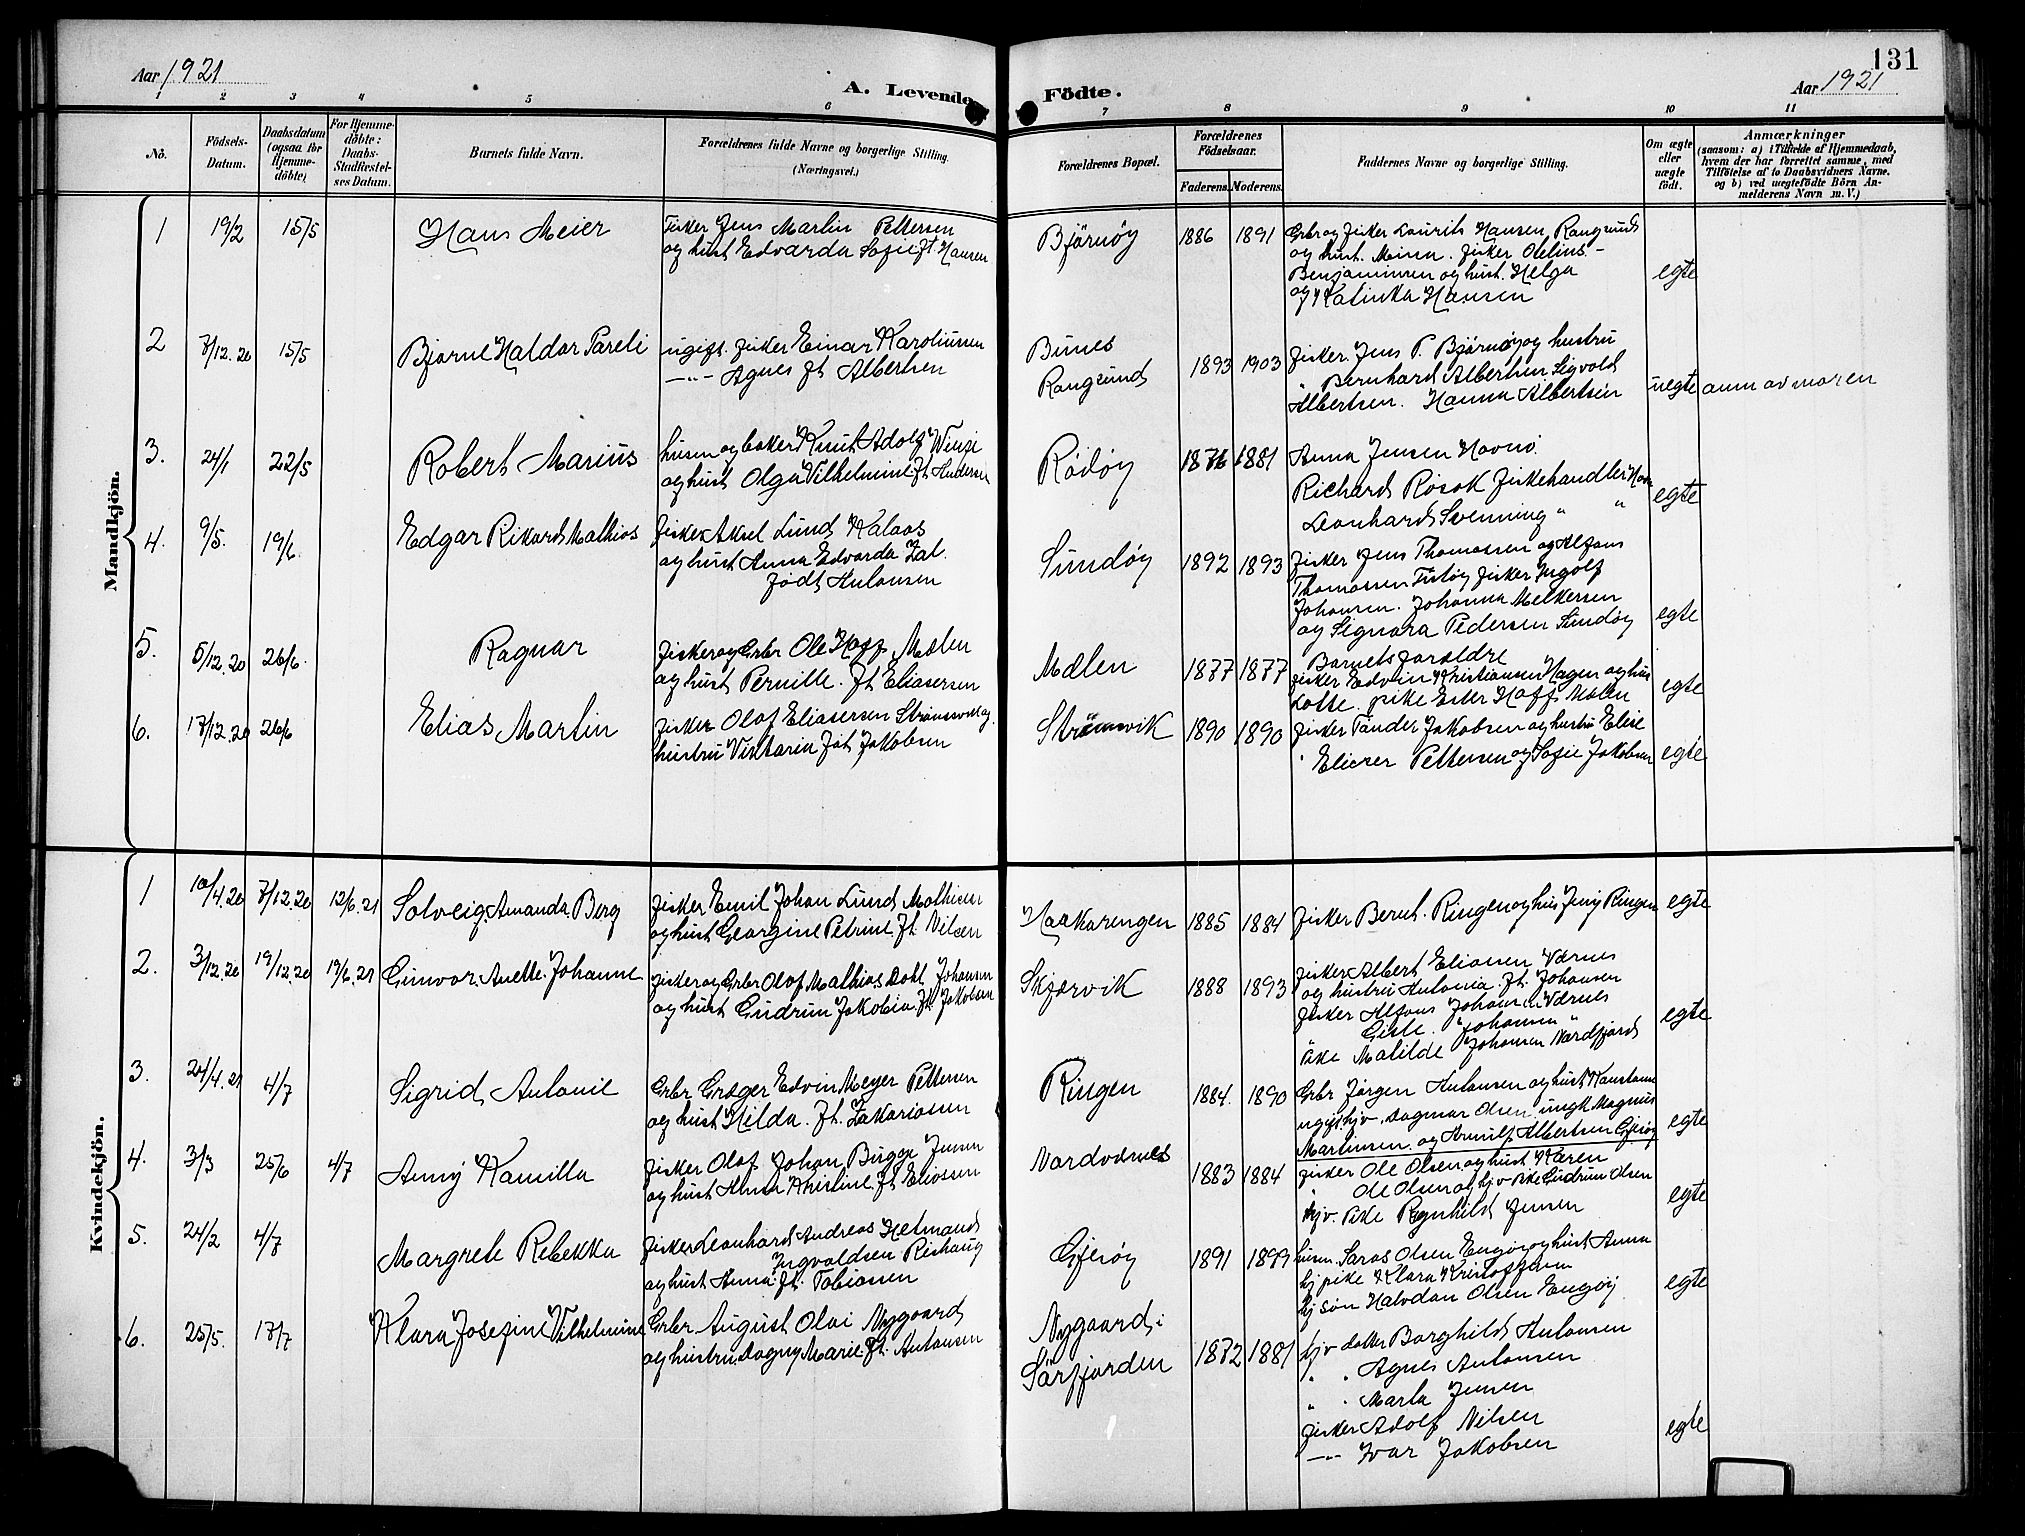 131
Aar 1921
A. Levende Födte.
Aar 1921
1 2 3 4 5 6 7 8 9 10 11
No.
Födsels-Datum.
Daabsdatum (ogsaa for Hjemme-döbte)
For Hjemme-döbte: Daabs-Stadfæstel-ses Datum.
Barnets fulde Navn.
Forældrenes fulde Navne og borgerlige Stilling. (Næringsvei.)
Forældrenes Bopæl.
Forældrenes Födselsaar.
Faderens. Moderens.
Faddernes Navne og borgerlige Stilling.
Om ægte eller uægte födt.
Anmærkninger
(saasom: a) i Tilfælde af Hjemmedaab, hvem der har forrettet samme, med Tilföielse af to Daabsvidners Navne. og b) ved uegtefödte Börn An-melderens Navn m. V.)
Mandkjön.
1 19/2 15/5 Hans Meier
Fisker Jens Martin Pettersen
og hust Edvarda Sofie ft. Hansen
Bjørnøy 1886 1891
Grbr og fisker Laurits Hansen, Rangsund
og hust. Mina. fisker Otelius
Benjaminsen og hust. Helga
og Katinka Hansen
egte
2 7/12.20 15/5 Bjarne Haldor Pareli
ugift. fisker Einar Karoliussen
—"— Agnes ft Albertsen
Bunes
Rangsund
1893 1903
fisker Jens P. Bjørnøy og hustru
" Bernhard Albertsen Sigvold
Albertsen. Hanna Albertsen
uegte anm av moren
3. 24/1 22/5 Robert Marius
husm og baker Knut Adolf
og hust Olga Vilhelmine ft Andersen
Rödöy 1876 1881
Anna Jensen Havnö.
Richard Rösok fiskehandler
Leonhard Svenning " "
egte
4. 9/5. 19/6. Edgar Rikard Mathias
fisker Aksel Lund Kalaas
og hust Anna Edvarda
født Antonsen
Sundöy 1892 1893
fisker Jens Thomassen og Alfons
Thomassen fisker Ingolf
Johansen. Johanna Melkersen
og Signora Pedersen Sundöy
egte
5. 5/12.20 26/6. Ragnar
fisker og Grbr Ole Hoff Mælen
og hust Pernille. ft Eliasersen
Mælen 1877 1877
Barnets foreldre
fisker Edvin Kristiansen Hagen og hus
Lotte. pike Ester Hoff Mælen
egte
6. 17/12.20 26/6 Elias Martin
fisker Olaf Eliasersen Strömsvik og
hustru Viktoria fdt Jakobsen
Strömsvik 1890 1890
fisker Tønder Jakobsen og hustru Elise
" Elieser Pettersen og Sofie Jakobsen
egte
Kvindekjön.
1 10/4.20 7/12.20 12/6.21 Solveig Amanda Berg
fisker Emil Johan Lund Mathisen
og hust Georgine Petrine ft. Nilsen
Haakarengen 1885 1884
fisker Bernt. Ringen og hus Jeny Ringen
egte
2. 3/12.20 19/12.20 19/6.21 Gunvor Anette Johanne
fisker og Grbr Olof Mathias Johansen
og hust Gudrun Jakobia. ft. Jakobsen
Skjærvik 1888 1893
fisker Albert Eliassen Værnes
og hustru Antonia. ft. Johansen
fisker Alfons Johansen Værnes
Johansen "
Pike Matilde Johansen Nordfjord
egte
3. 24/4.21 4/7 Sigrid Antonie
Grbr Græger Edvin Meyer Pettersen
og hust Hilda. ft. Zakariassen
Ringen 1884. 1890
Grbr Jørgen Antonsen og hust Konstanse
ugift hjv. Dagmar Olsen. ungk Magnus
Martinsen og Arnulf Albertsen Gjerøy
egte
4. 3/3 25/6 4/7 Anny Kamilla
fisker Olaf Johan Birger Jensen
og hust Anna Kristine ft Eliassen
Nordværnes 1883 1884
fisker Ole Olsen og hust Karen
" Ole Olsen og hjv. Pike Gudrun Olsen
hjv. Pike Ragnhild Jensen
egte
5. 24/2 4/7 Margrete Rebekka
fisker Leonhard Andreas Hetmand
Ingvaldsen Rishaug
og hust Anna ft. Tobiassen
Gjerøy 1891 1899
husm Olsen Engøy og hust Anna
hj pike Klara
hj søn Halvdan Olsen Engøy
egte
6. 25/5. 17/7 Klara Josefine Vilhelmine
Grbr August Olai Nygaard
og hustru Dagny Marie. ft. Antonsen
Nygaard i
Sörfjorden
1872 1881
hjv datter Borghild Antonsen
" " Agnes Antonsen
" " Marta Jensen
fisker Adolf Nilsen
—"— Ivar Jakobsen
egte